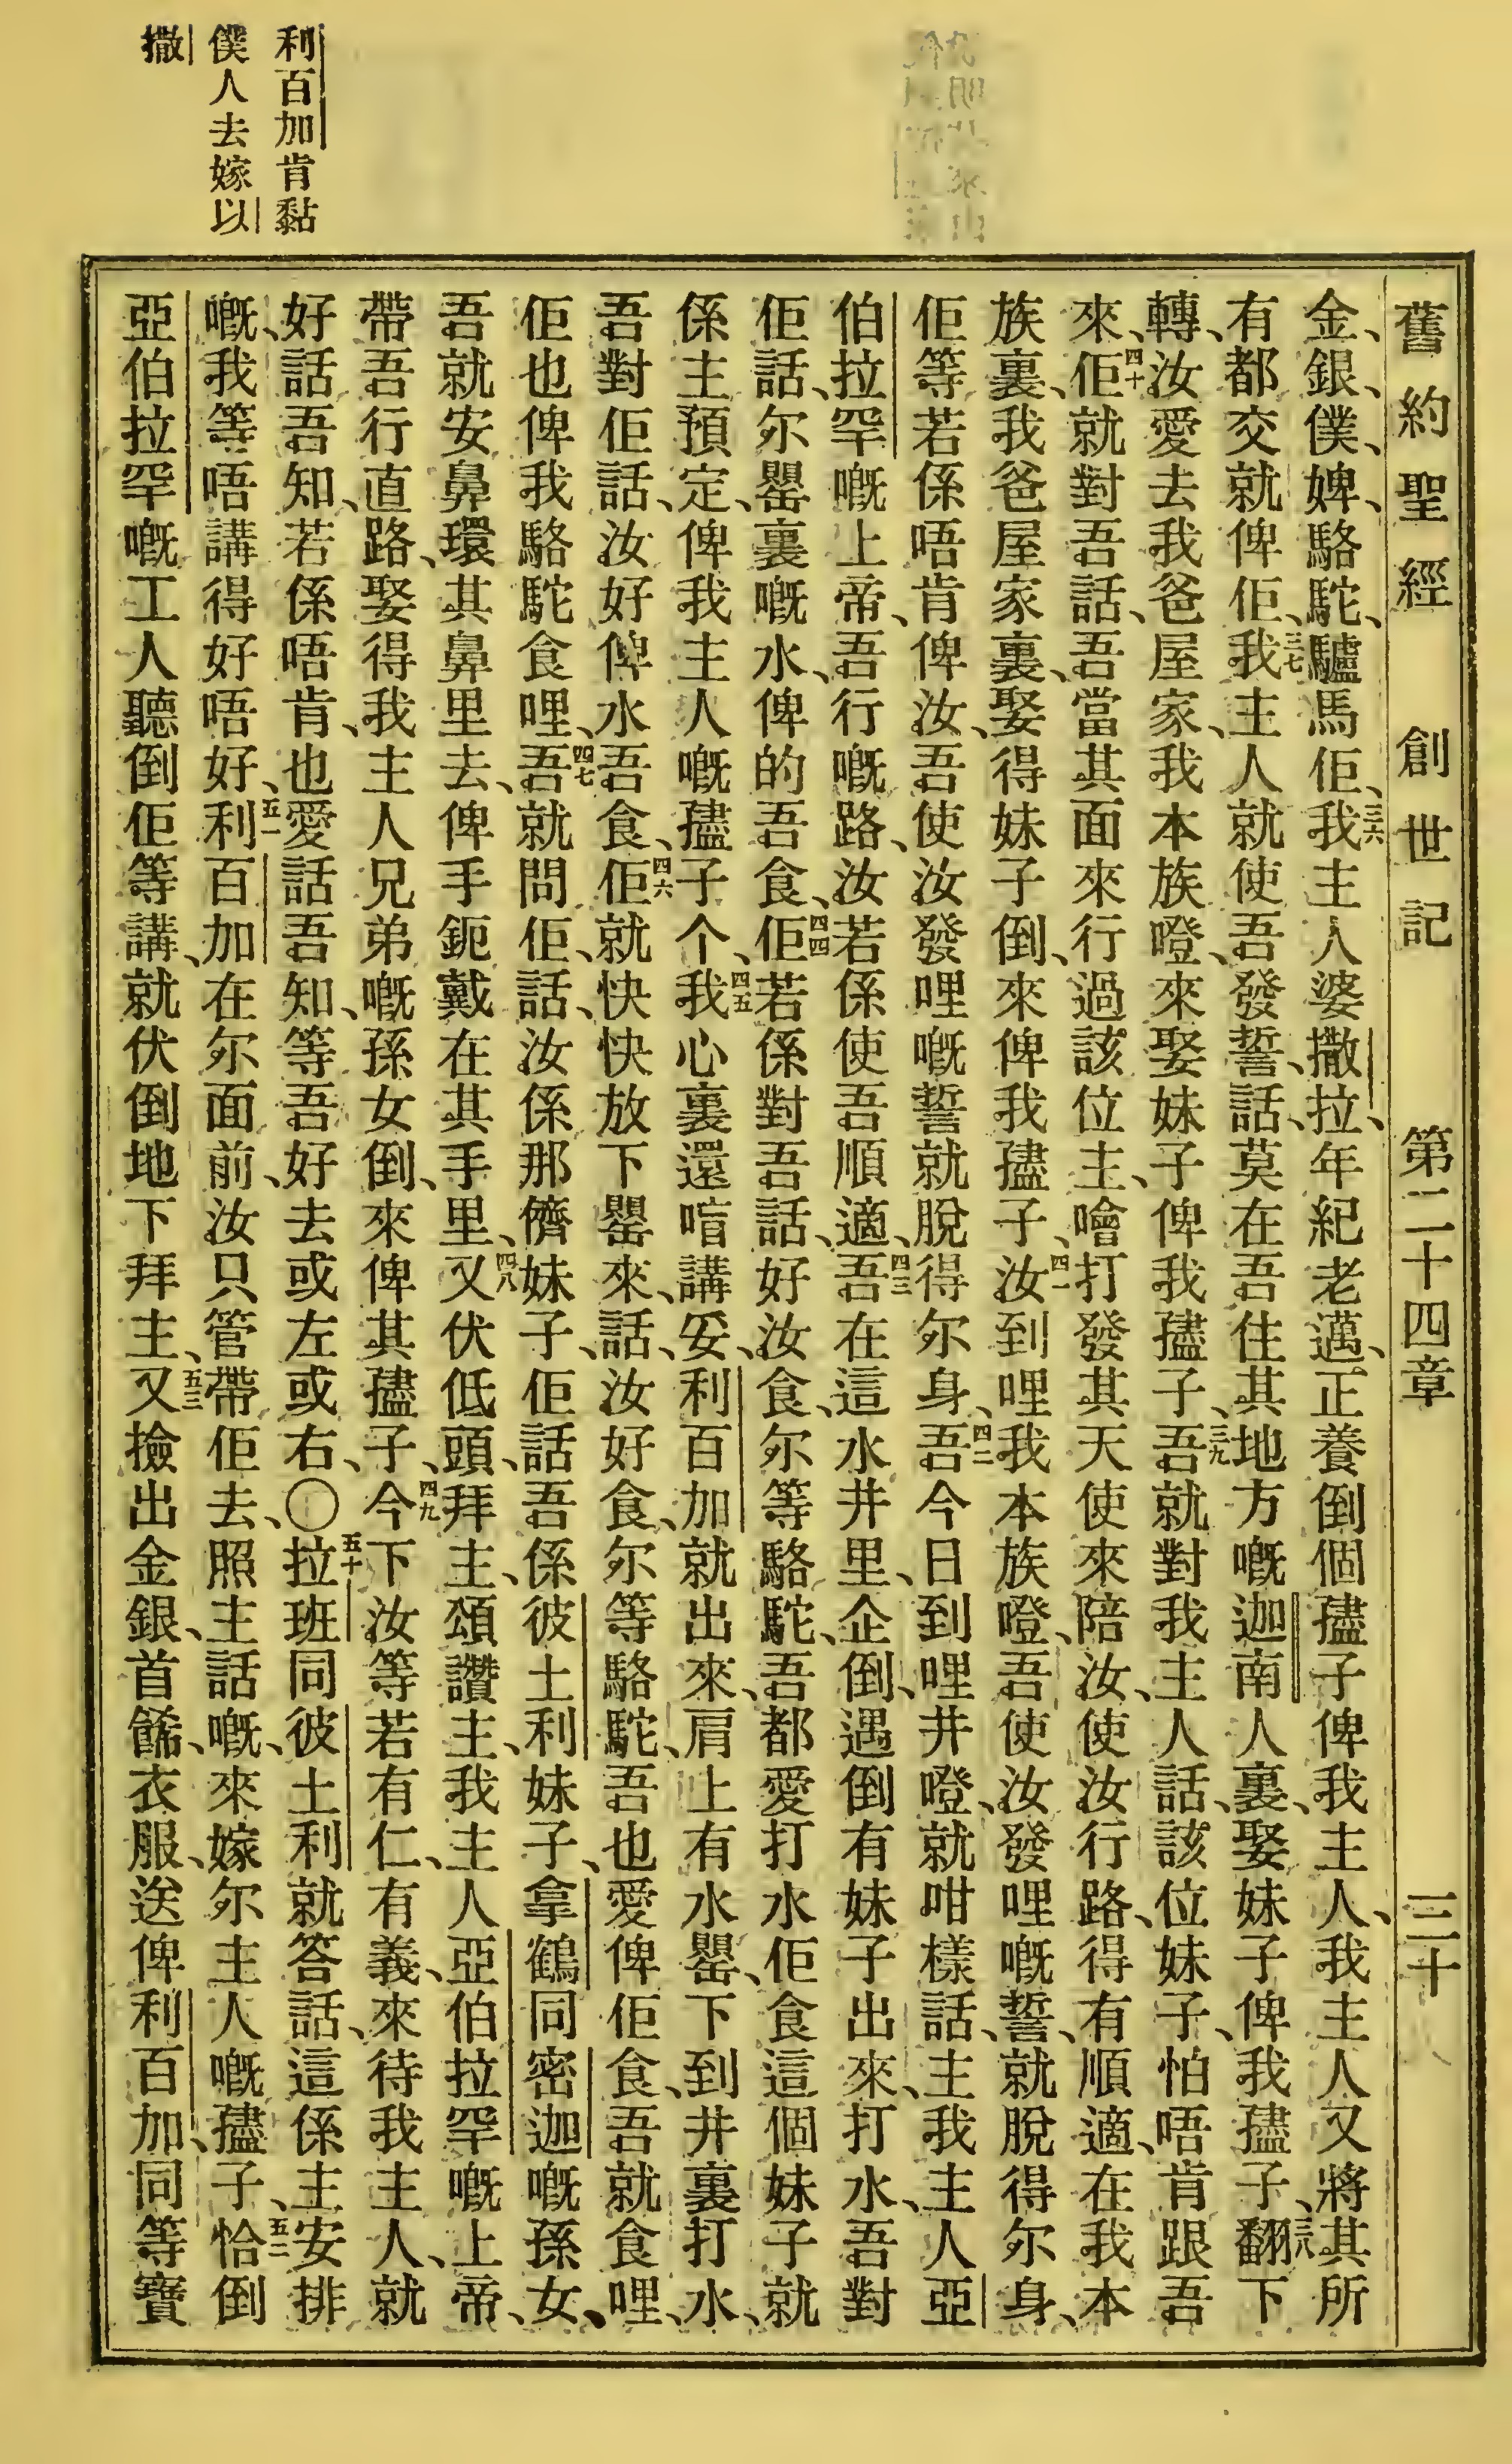 舊約聖經 創世記 第二十四章 三十
金、銀、僕、婢、駱駝、驢馬佢、三六我主人婆撒拉、年紀老邁、正養倒個𡥧子俾我主人、我主人又將其所
有都交就俾佢、三七我主人就使吾發誓、話、莫在吾住其地方嘅迦南人裏、娶妹子俾我𡥧子、三八翻下
轉、汝愛去我爸屋家、我本族嶝、來娶妹子俾我𡥧子、三九吾就對我主人話、該位妹子、怕唔肯跟吾
來、四十佢就對吾話、吾當其面來行過該位主、噲打發其天使來陪汝、使汝行路、得有順適、在我本
族裏、我爸屋家裏、娶得妹子倒、來俾我𡥧子、四一汝到哩我本族嶝、吾使汝發哩嘅誓、就脫得尔身、
佢等若係唔肯俾汝、吾使汝發哩嘅誓就脫得尔身、四二吾今日到哩井嶝、就咁樣話、主我主人亞
伯拉罕嘅上帝、吾行嘅路、汝若係使吾順適、四三吾在這水井里、企倒、遇倒有妹子出來、打水、吾對
佢話、尔罌裏嘅水、俾的吾食、四四佢若係對吾話、好汝食、尔等駱駝、吾都愛打水佢食這個妹子就
係主預定、俾我主人嘅𡥧子个、四五我心裏還喑講妥、利百加就出來、肩上有水罌、下到井裏打水、
吾對佢話、汝好俾水吾食、四六佢就快快放下罌來、話、汝好食、尔等駱駝、吾也愛俾佢食、吾就食哩、
佢也俾我駱駝食哩、四七吾就問佢、話、汝係那儕妹子、佢話吾係彼土利妹子、拿鶴同密迦嘅孫女、
吾就安鼻環其鼻里去、俾手鈪戴在其手里、四八又伏低頭、拜主、頌讚主、我主人亞伯拉罕嘅上帝、
帶吾行直路、娶得我主人兄弟嘅孫女倒、來俾其𡥧子、四九今下汝等若有仁、有義、來待我主人、就
好話吾知、若係唔肯、也愛話吾知、等吾好去或左或右、〇五十拉班同彼土利就答話、這係主安排
嘅、我等唔講得好唔好、五一利百加在尔面前、汝只管帶佢去、照主話嘅、來嫁尔主人嘅𡥧子、五二恰倒
亞伯拉罕嘅工人聽倒佢等講、就伏倒地下拜主、五三又撿出金銀、首餙、衣服、送俾利百加、同等寶
利百加肯黏
僕人去嫁以
撒